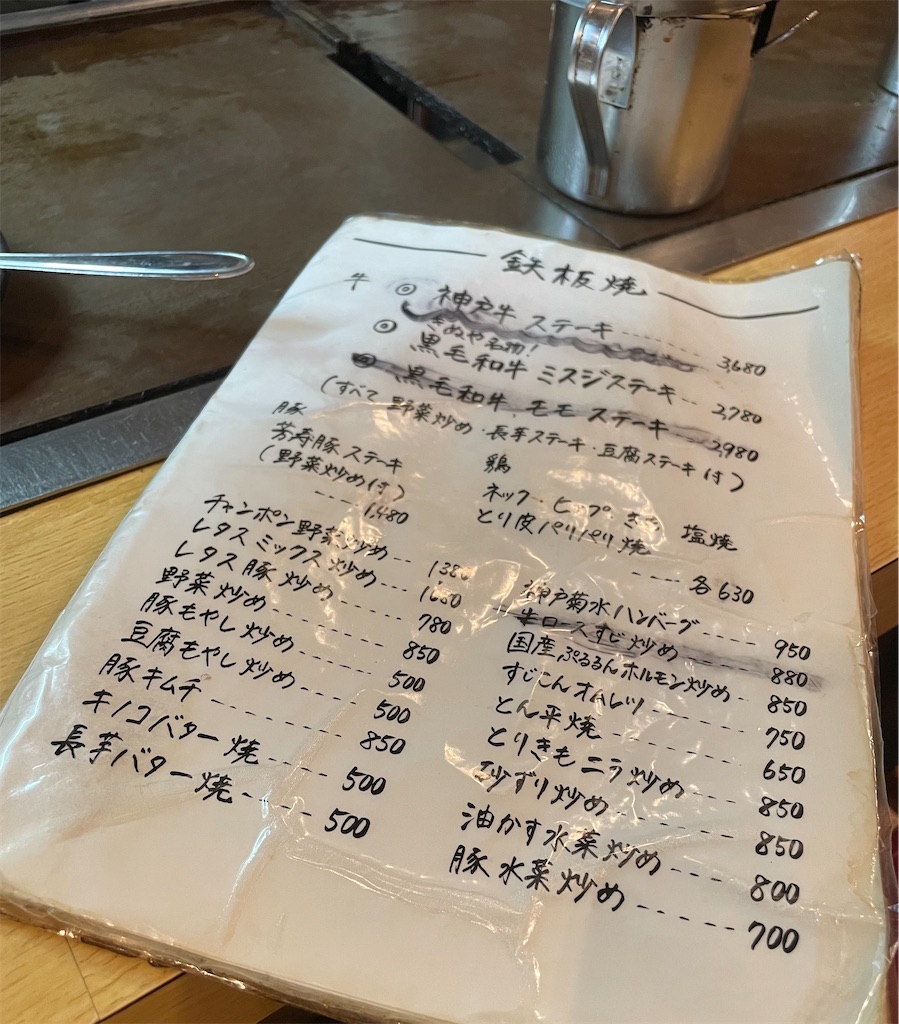 鉄板焼
牛 ◎ 神戸牛 ステーキ ------ 3,680
きぬや名物!
◎ 黒毛和牛 ミスジステーキ -- 2,780
黒毛和牛 モモ ステーキ 2,980
(すべて 野菜炒め・長芋ステーキ・豆腐ステーキ付)
豚
芳寿豚ステーキ
(野菜炒め付)
---- 1,480
鶏
ネック・ヒップ・ 塩焼
とり皮パリパリ焼
---- 各630
チャンポン野菜炒め -- 1380
レタスミックス炒め ---- 1080
レタス豚炒め ------ 780
野菜炒め -------- 850
豚もやし炒め ------ 500
豆腐もやし炒め ---- 500
豚キムチ -------- 850
キノコバター焼 ---- 500
長芋バター焼 ----- 500
神戸菊水ハンバーグ ----- 950
牛ロースすじ炒め ---- 880
国産ぷるるんホルモン炒め -- 850
すじこんオムレツ ------ 750
とん平焼 --------- 650
とりきもニラ炒め ---- 850
砂ずり炒め ------- 850
油かす水菜炒め ----- 800
豚水菜炒め ------ 700